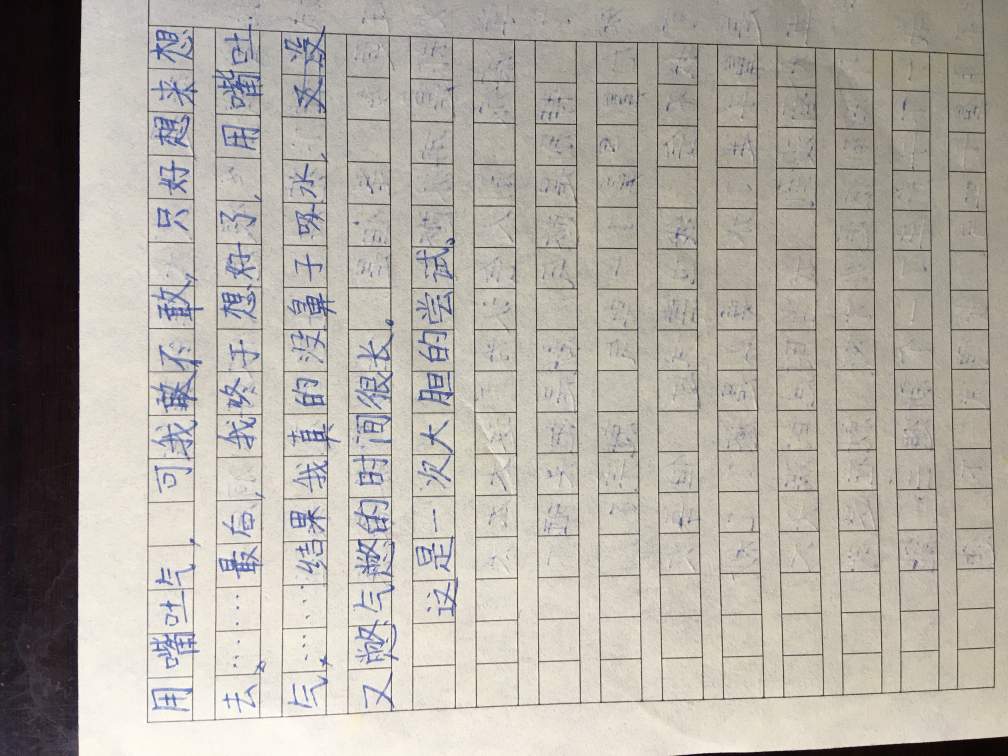 用嘴吐气，可我敢不敢，只好想来想
去，……最后，我终于想好了，用嘴吐
气，……结果我真的没鼻子吸水，又没
又憋气憋的时间很长。
这是一次大胆的尝试。